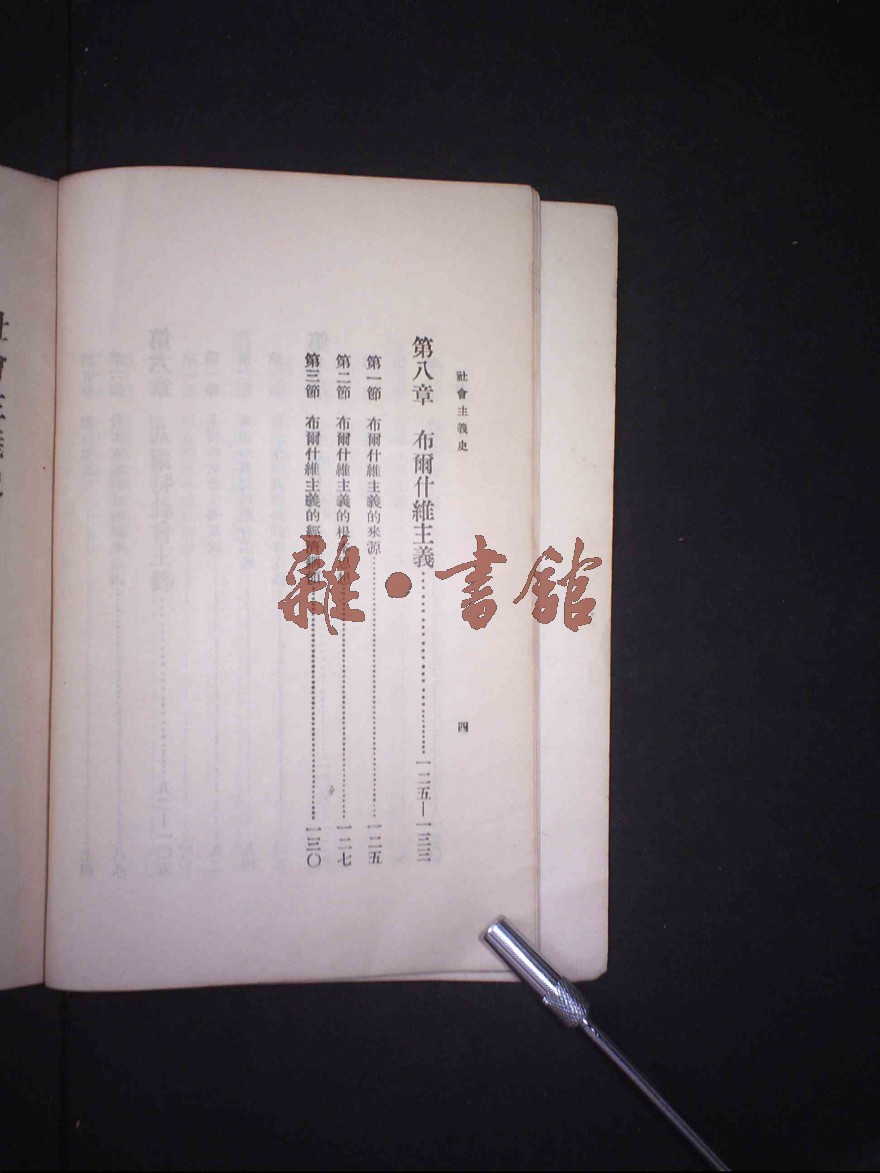 社會主義史
四
第八章 布爾什維主義……一二五—一三三
第一節 布爾什維主義的來源……一二五
第二節 布爾什維主義的根……一二七
第三節 布爾什維主義的經濟……一三〇
雜·書館